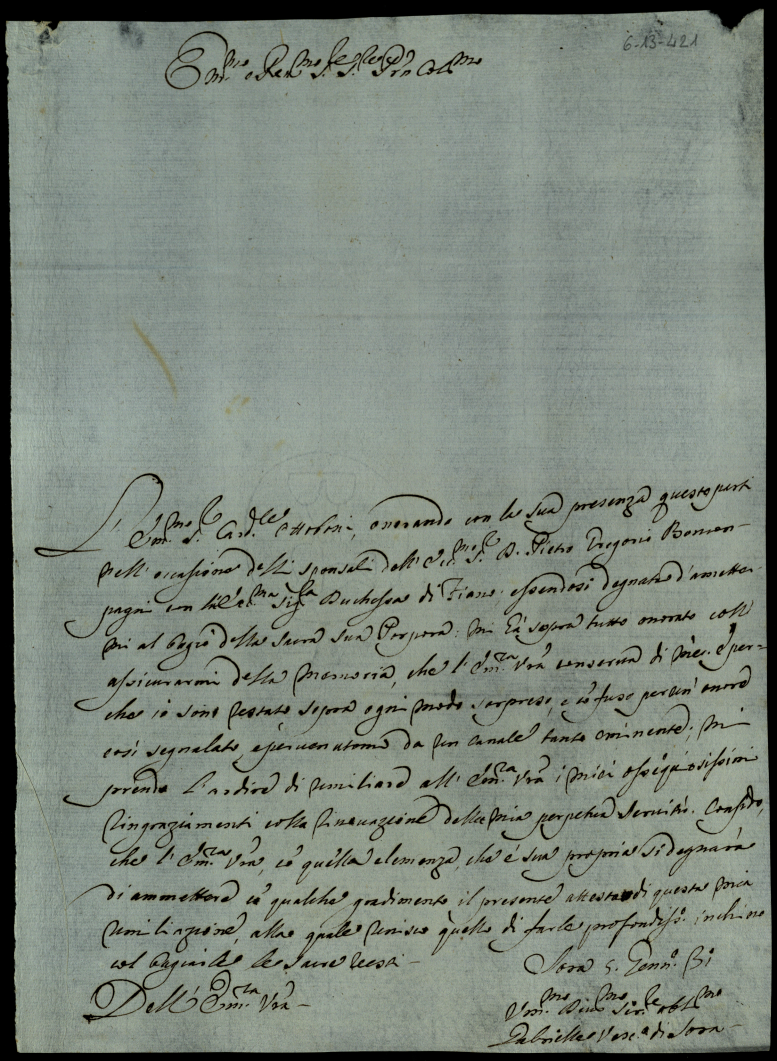 6-13-421
Em.mo e Rev.mo Sig.re Sig.re Pron Col.mo
L'Em.mo S.r Card.le Ottoboni, onorando con la sua presenza queste parti
nell'occasione delli sponsali dell'Ecc.mo S.r D. Pietro Gregorio Boncom-
pagni con l'Ecc.ma Sig.ra Duchessa di Fiano; essendosi degnato d'ametter-
mi al bagio della sacra sua Porpora; mi hà sopra tutto onorato coll'
assicurarmi della memoria, che l'Em.za Vrã conserva di me. E per-
che io sono restato sopra ogni modo sorpreso, e cõfuso per un'onore
così segnalato, e pervenutomi da un canale tanto eminente; mi
prendo l'ardire di umiliare all'Em.za Vrã i miei ossequiosissimi
ringraziamenti colla rinovazione della mia perpetua servitù. Confido,
che l'Em.za Vrã, cõ quella clemenza, che è sua propria si degnarà
di ammettere cõ qualche gradimento il presente attestato di questa mia
umiliazione, alla quale unisco quello di farle profondiss.o inchino
col bagiarle le sacre vesti -
Dell'Em.za Vrã -
Sora 5. Genn.o 31
Um.mo Div.mo Ser.re obl.mo
Gabrielle Vesc.o di Sora -